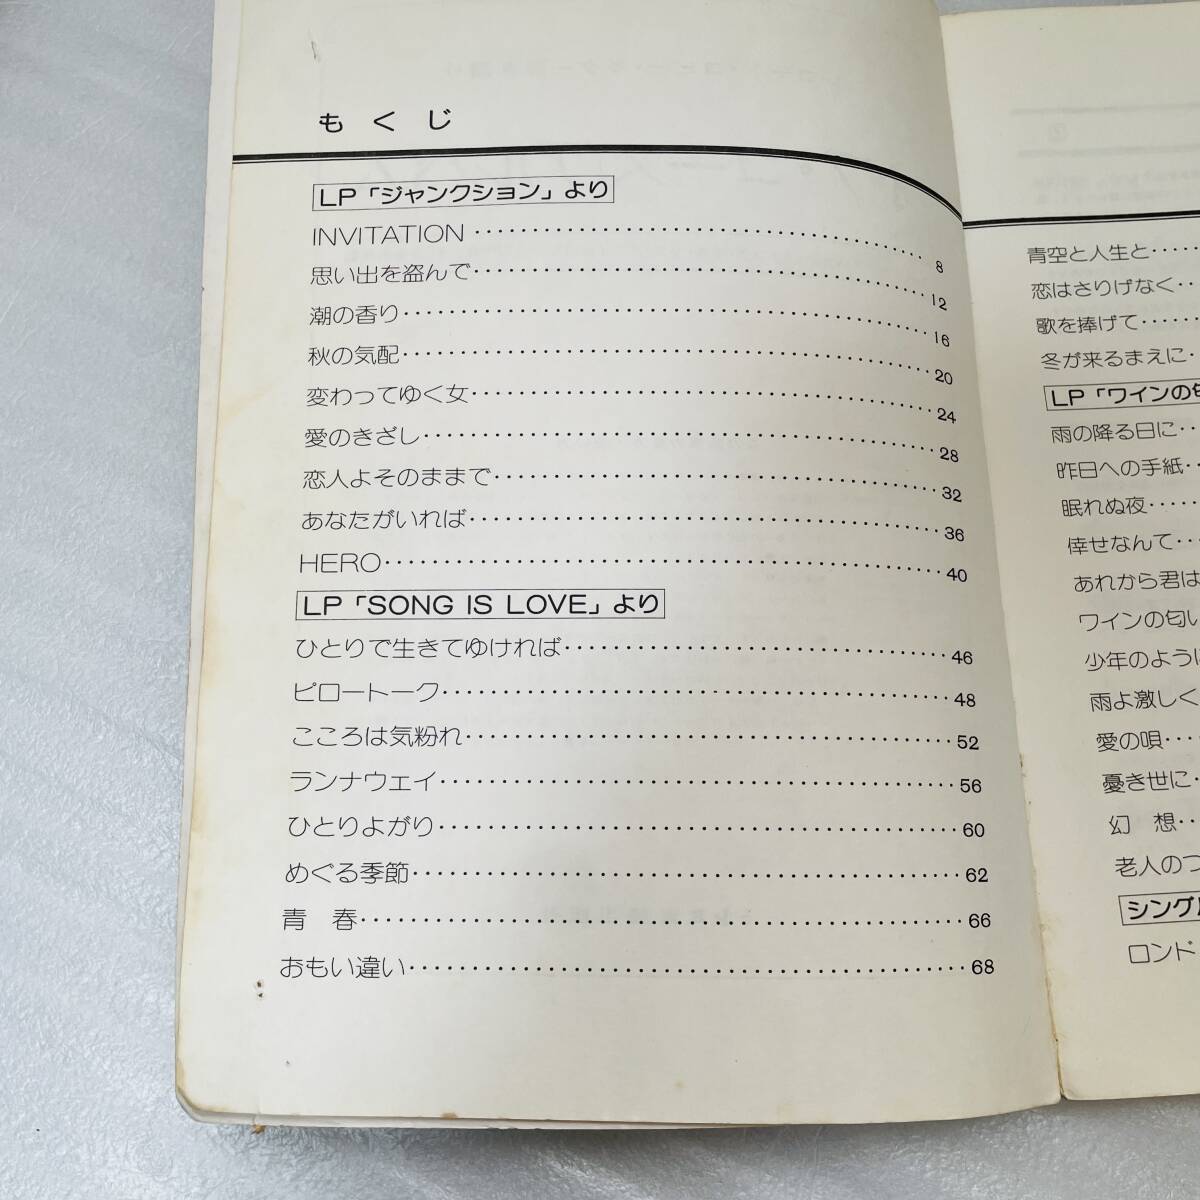 もくじ
LP「ジャンクション」より
INVITATION 8
思い出を盗んで 12
潮の香り 16
秋の気配 20
変わってゆく女 24
愛のきざし 28
恋人よそのままで 32
あなたがいれば 36
HERO 40
LP「SONG IS LOVE」より
ひとりで生きてゆければ 46
ピロートーク 48
こころは気粉れ 52
ランナウェイ 56
ひとりよがり 60
めぐる季節 62
青 春 66
おもい違い 68
青空と人生と
恋はさりげなく
歌を捧げて
冬が来るまえに
LP「ワインの匂
雨の降る日に
昨日への手紙
眠れぬ夜
倖せなんて
あれから君は
ワインの匂い
少年のように
雨よ激しく
愛の唄
憂き世に
幻 想
老人のつ
シングル
ロンド